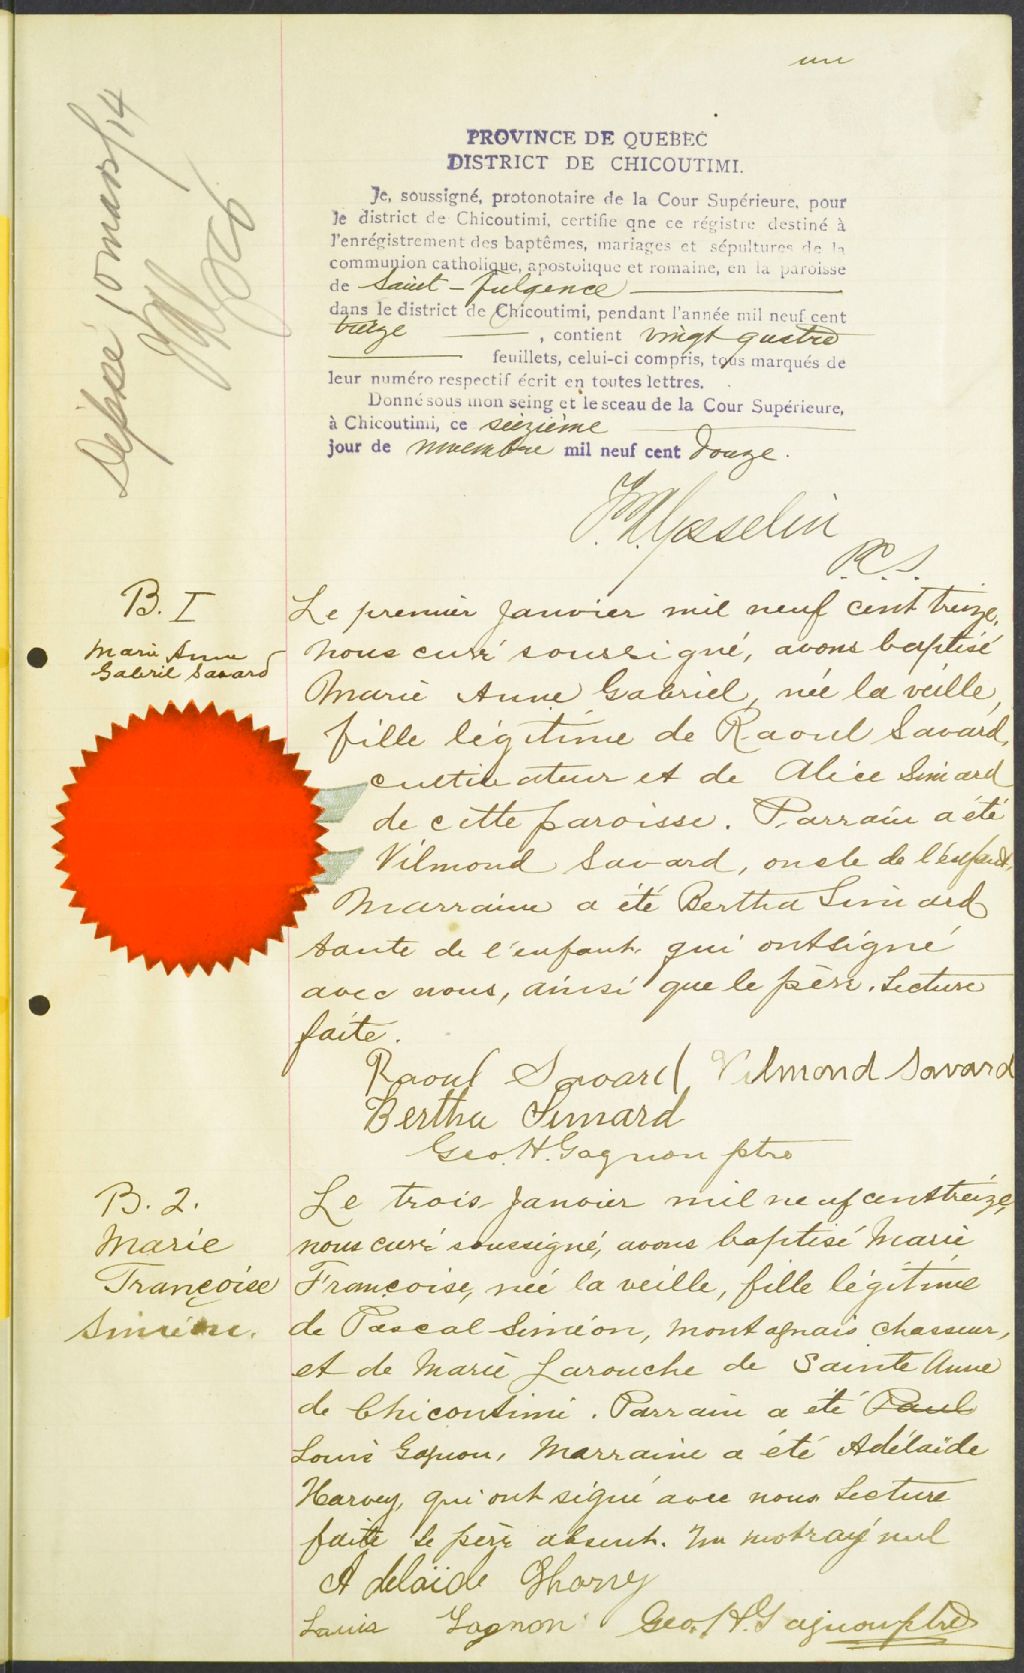 un
Déposé 10 mars/14
PROVINCE DE QUEBEC
DISTRICT DE CHICOUTIMI.
Je, soussigné, protonotaire de la Cour Supérieure, pour
le district de Chicoutimi, certifie qne ce régistre destiné à
l'enrégistrement des baptêmes, mariages et sépultures de la
communion catholique, apostolique et romaine, en la paroisse
de Saint-Fulgence
dans le district de Chicoutimi, pendant l'année mil neuf cent
treize, contient vingt quatre
feuillets, celui-ci compris, tous marqués de
leur numéro respectif écrit en toutes lettres.
Donné sous mon seing et le sceau de la Cour Supérieure,
à Chicoutimi, ce seizième
jour de novembre mil neuf cent douze.
Gosselin
P.C.S.
B. I
Marie Anne
Gabriel Savard
Le premier Janvier mil neuf cent treize,
nous curé soussigné, avons baptisé
Marie Anne Gabriel, née la veille,
fille légitime de Raoul Savard,
cultivateur et de Alice Simard
de cette paroisse. Parrain a été
Vilmond Savard, oncle de l'enfant,
Marraine a été Bertha Simard
tante de l'enfant qui ont signé
avec nous, ainsi que le père. Lecture
faite.
Raoul Savard Vilmond Savard
Bertha Simard
Geo. H. Gagnon ptre
B. 2.
Marie
Françoise
Siméon.
Le trois Janvier mil neuf cent treize,
nous curé soussigné, avons baptisé Marie
Françoise, née la veille, fille légitime
de Pascal Siméon, montagnais chasseur,
et de Marie Larouche de Sainte Anne
de Chicoutimi. Parrain a été Paul
Louis Gagnon, Marraine a été Adélaïde
Harvey, qui ont signé avec nous Lecture
faite le père absent. Un mot rayé nul
Adelaïde Harvey
Louis Gagnon Geo. H. Gagnon ptre